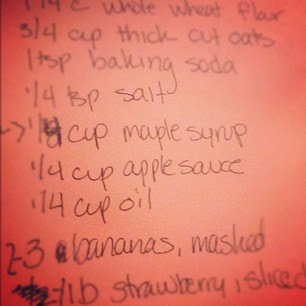 1 1/4 c whole wheat flour
3/4 cup thick cut oats
1 tsp baking soda
1/4 tsp salt
-> 1/4 cup maple syrup
1/4 cup applesauce
1/4 cup oil
2-3 bananas, mashed
1 lb strawberry, sliced